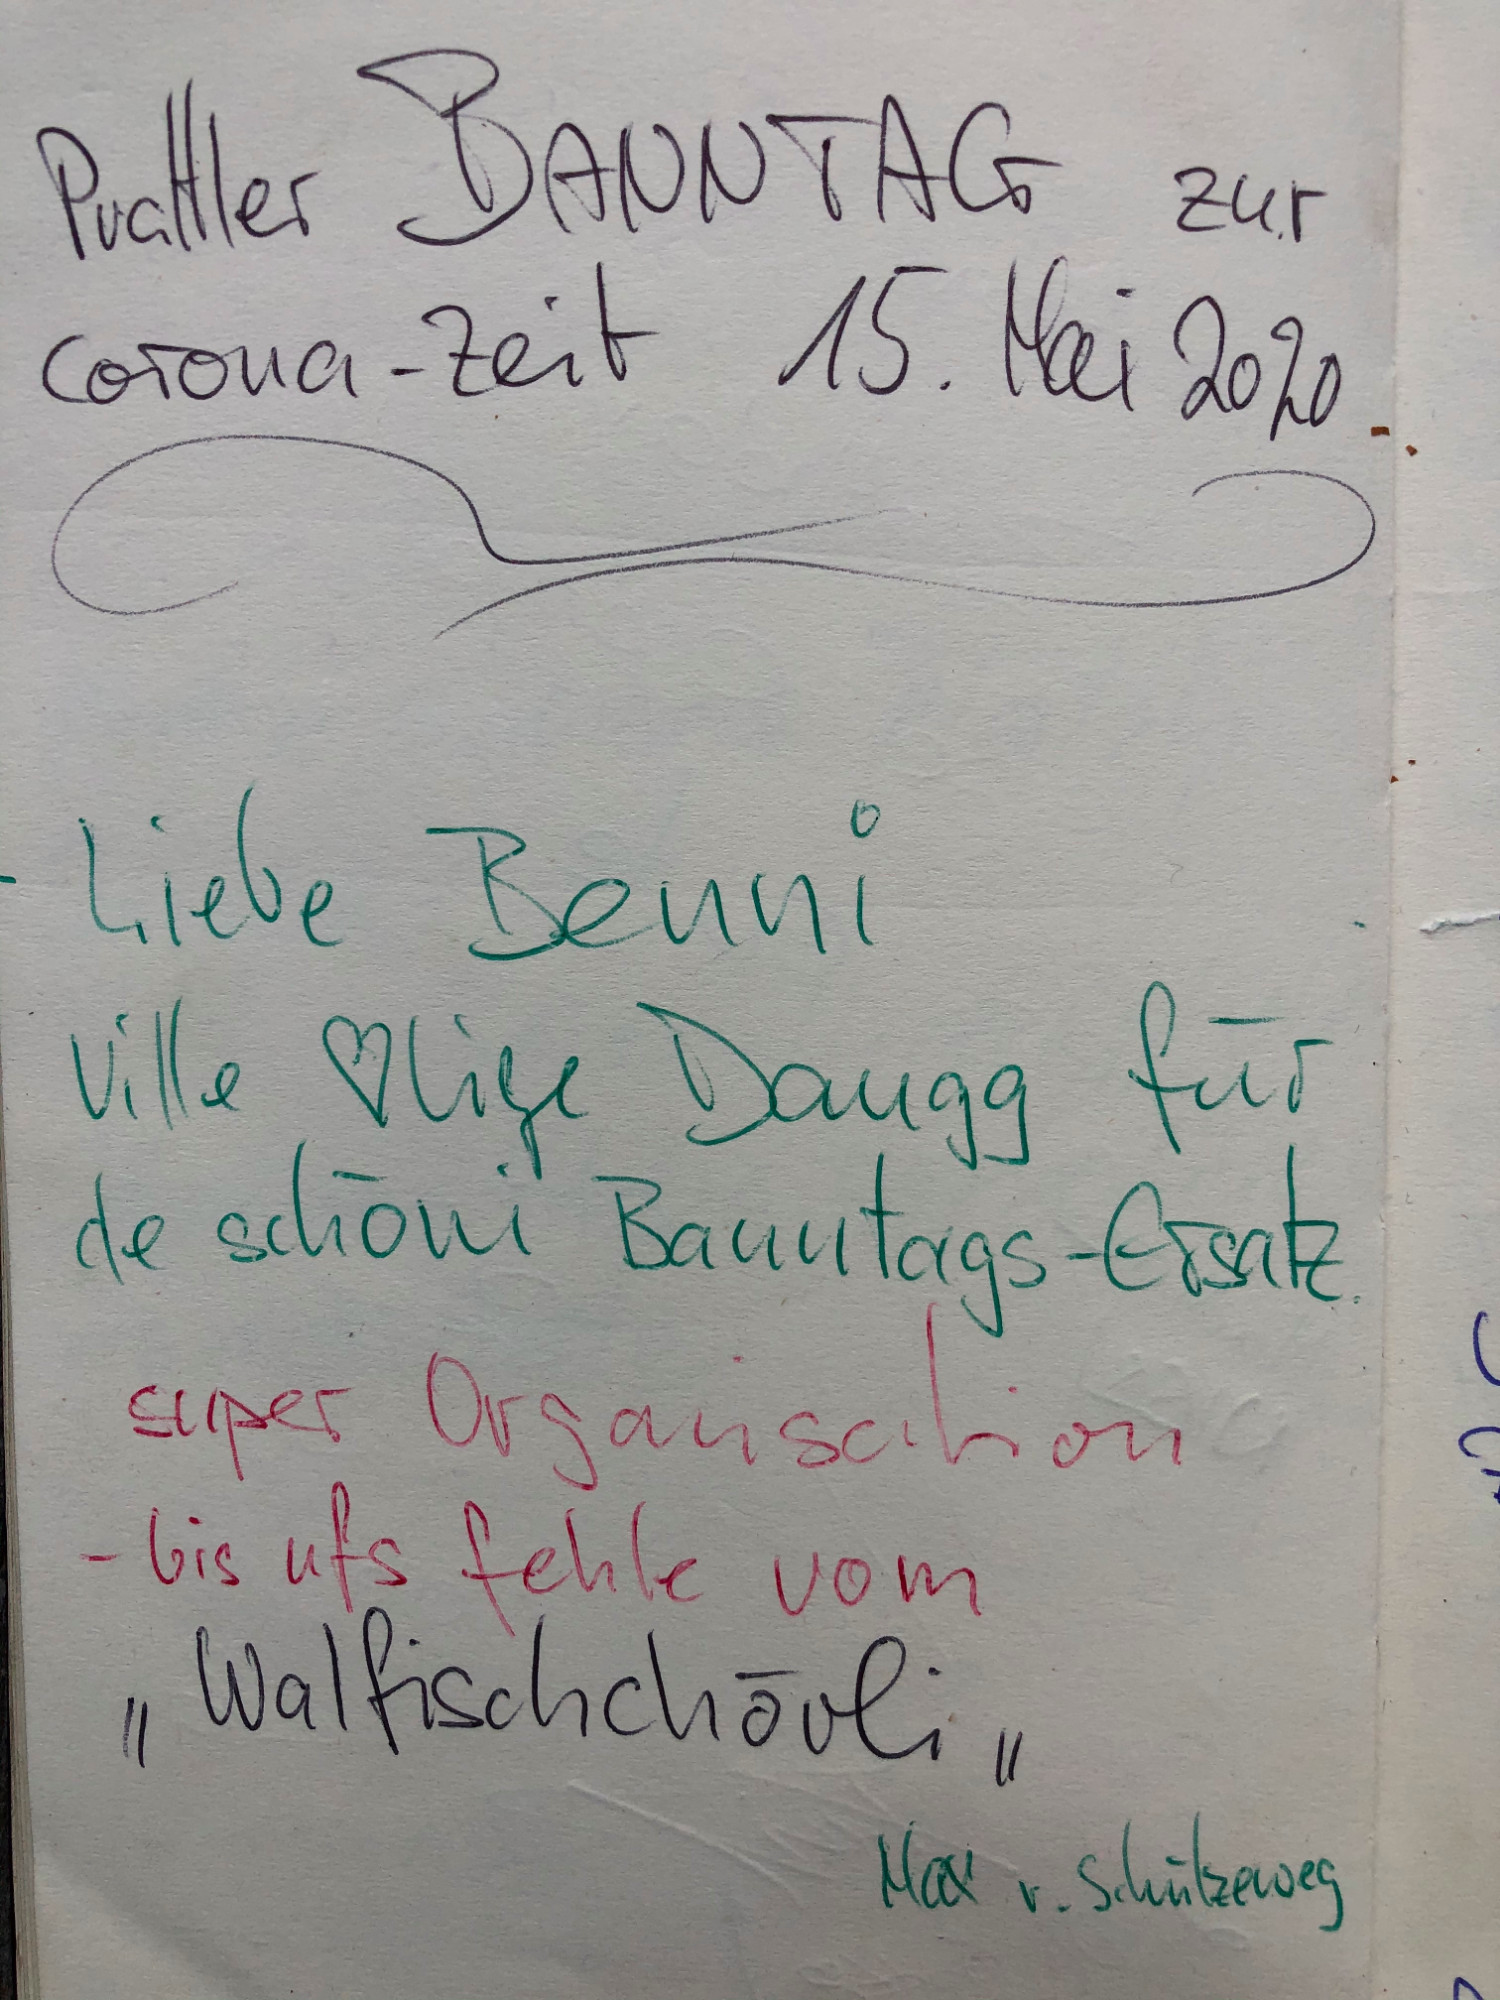 Prattler BANNTAG zur
Corona-Zeit 15. Mai 2020
Liebe Benni
Ville ♡lige Dangg für
de schöni Banntags-Ersatz.
super Organisation
- bis ufs fehle vom
„Walfischchövli„
Max v. Schützeweg